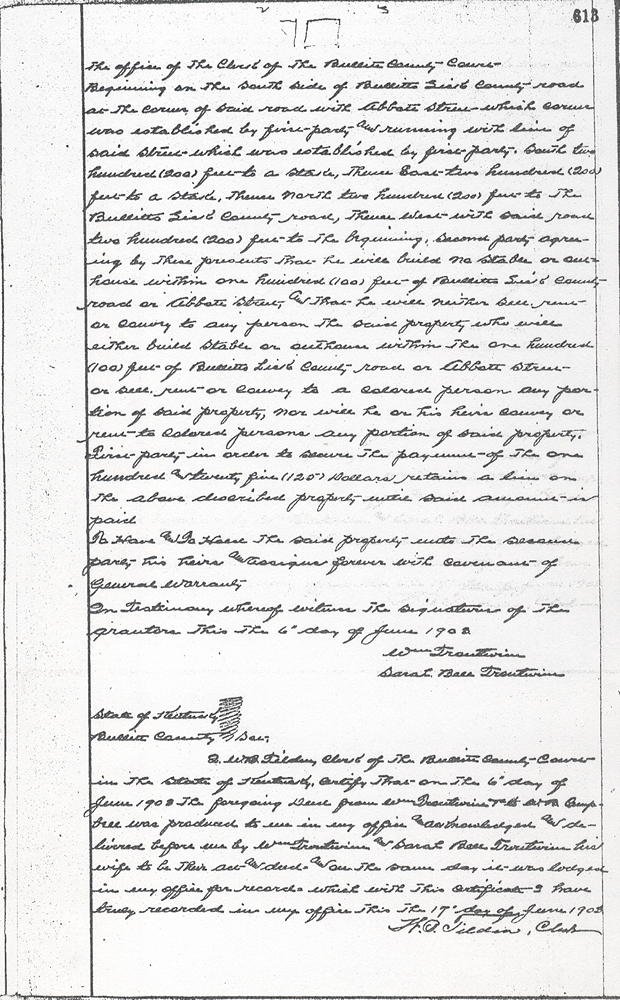 613
the office of the Clerk of the Bullitt County Court
Beginning on the South side of Bullitts Lick County road
at the corner of said road with Abbott Street which corner
was established by first party & running with line of
said Street which was established by first party, South two
hundred (200) feet to a stake, thence East two hundred (200)
feet to a stake, thence North two hundred (200) feet to the
Bullitts Lick County road, thence West with said road
two hundred (200) feet to the beginning, second party agree-
ing by these presents that he will build no stable or out
house within one hundred (100) feet of Bullitts Lick County
road or Abbott Street, & that he will neither sell, rent
or convey to any person the said property who will
either build stable or outhouse within the one hundred
(100) feet of Bullitts Lick County road or Abbott Street
or sell, rent or convey to a colored person any por-
tion of said property, nor will he or his heirs convey or
rent to colored persons any portion of said property.
First party in order to secure the payment of the one
hundred & twenty five (125) Dollars retains a lien on
the above described property until said amount is
paid
To Have & To Hold the said property unto the second
party his heirs & assigns forever with covenant of
General Warranty
In Testimony whereof witness the signatures of the
grantors this the 6" day of June 1908
Wm Troutwine
Sarah Bell Troutwine
State of Kentucky
Bullitt County Sct,
I, W.B. Tilden, Clerk of the Bullitt County Court
in the State of Kentucky, certify that on the 6" day of
June 1908 the foregoing Deed from Wm Troutwine to Camp-
bell was produced to me in my office & acknowledged & de-
livered before me by Wm Troutwine & Sarah Bell Troutwine his
wife to be their act & deed & on the same day it was lodged
in my office for record which with this certificate I have
truly recorded in my office this the 17" day of June 1908
Tilden, Clerk